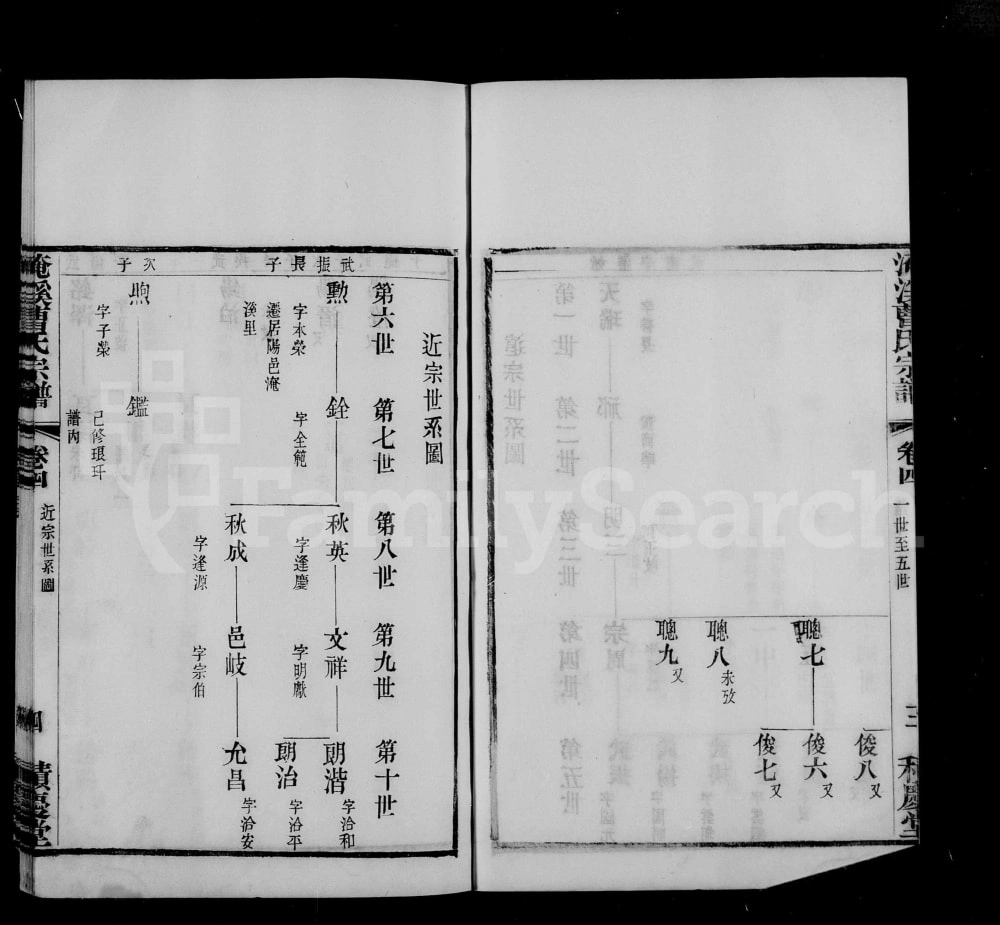 曹氏宗譜
卷四
一世至五世
三
積慶堂
俊八 又
聰七
俊六 又
俊七 又
聰八 未攷
聰九 又
近宗世系圖
第六世
第七世
第八世
第九世
第十世
武振長子
勲
字本榮
遷居陽邑淹
溪里
銓
字全範
秋英
字逢慶
文祥
字明獻
朗湝
字洽和
朗治
字洽平
秋成
字逢源
邑岐
字宗伯
允昌
字洽安
次子
煦
字子榮
鑑
已修琅玕
譜内
淹溪曹氏宗譜
卷四
近宗世系圖
四
積慶堂
FamilySearch